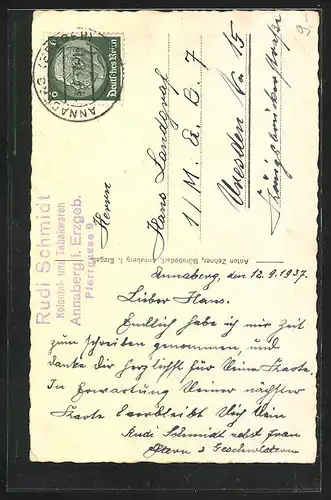 9.-
ANNABERG (ERZGEB)
Deutsches Reich
6
6
Rudi Schmidt
Kolonial- und Tabakwaren
Annaberg i. Erzgeb.
Pfarrgasse 9
Herrn
Hans Landgraf
11/M.a.B. 7
Dresden No. 15
Königsbrückerstraße
Anton Zehner, Bürobedarf, Annaberg i. Erzgeb.
Annaberg, den 12.9.1937.
Lieber Hans.
Endlich habe ich mir Zeit
zum schreiben genommen, und
danke Dir herzlichst für Deine Karte.
In Erwartung Deiner nächsten
Karte verbleibt Dich Dein
Rudi Schmidt nebst Frau
Eltern & Geschwistern